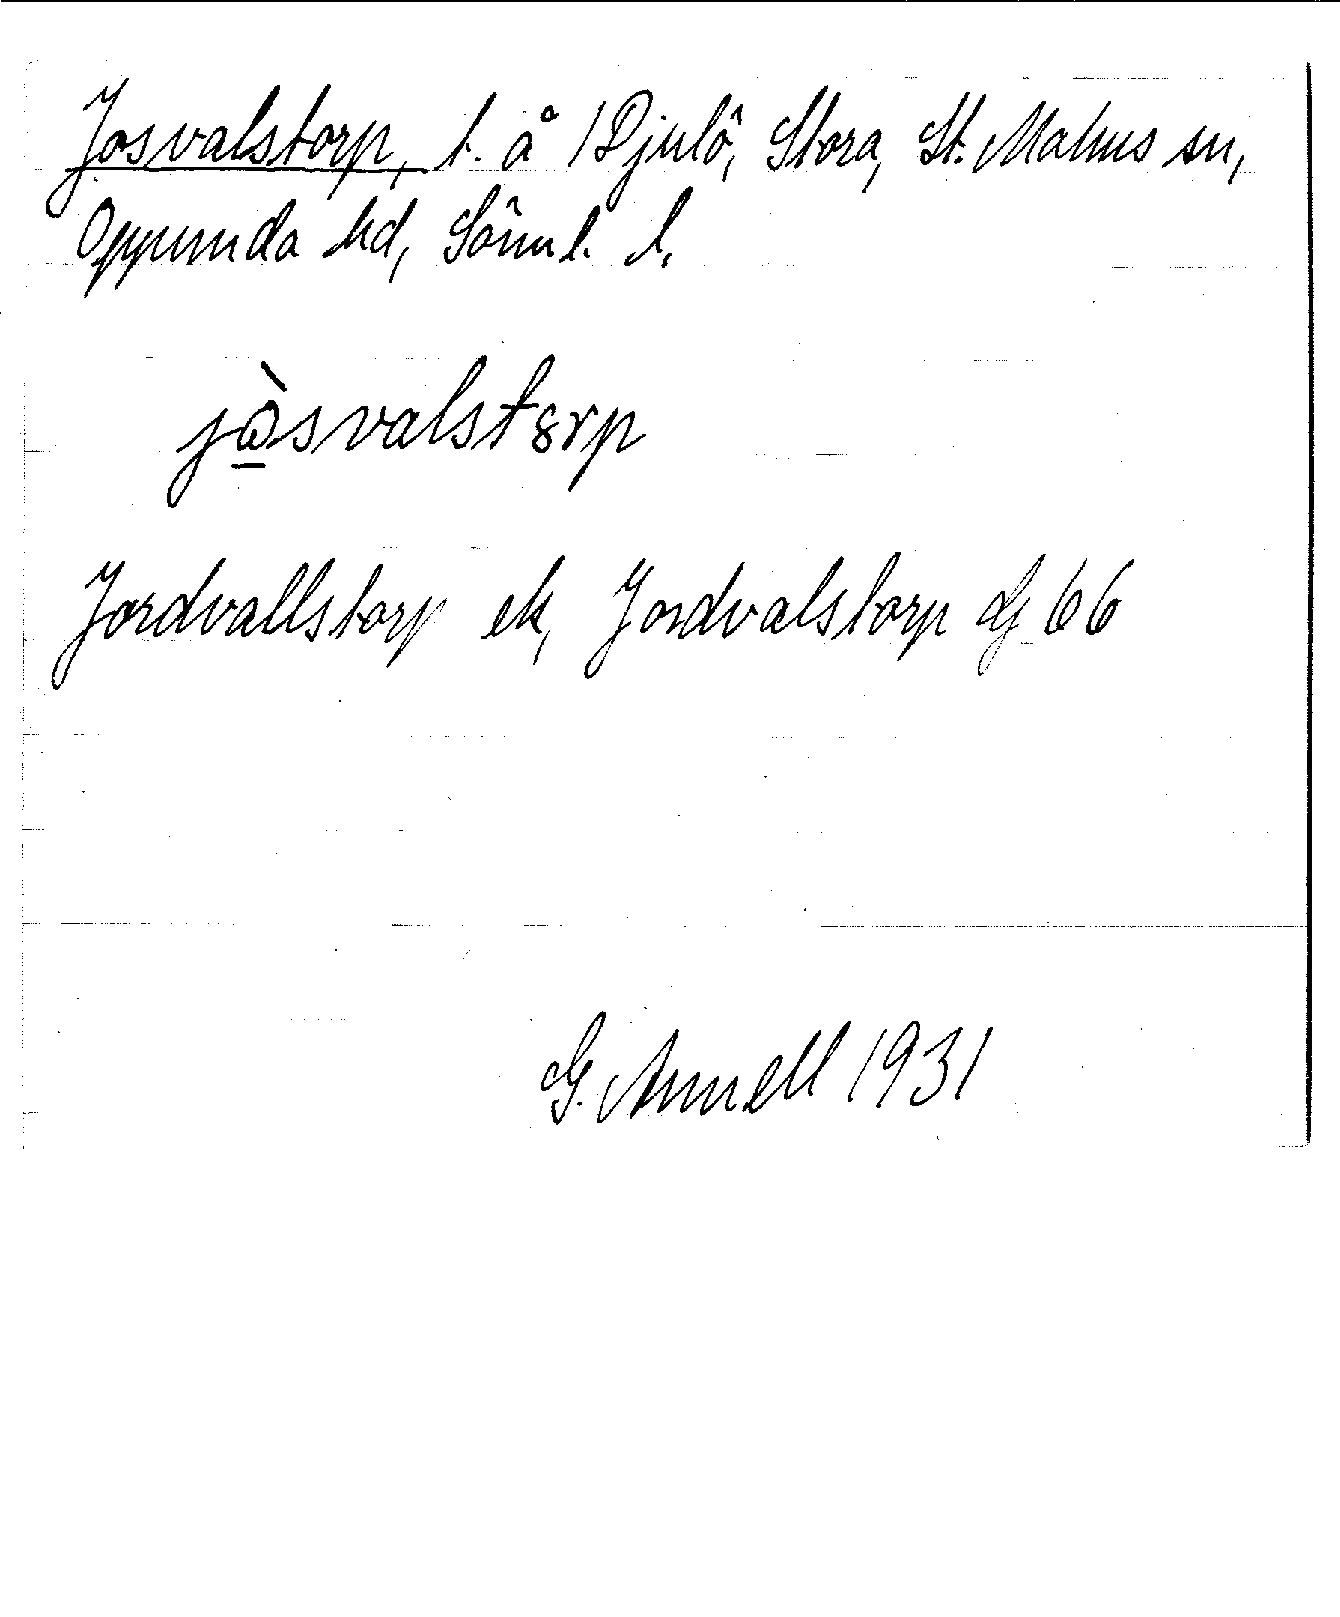 Josvalstorp, t. å Djulö, Stora, St. Malms sn,
Oppunda hd, Sörml. l.
jὰsvalstɜrp
Jordvallstorp ek, Jordvalstorp Gf 66
G. Annell 1931